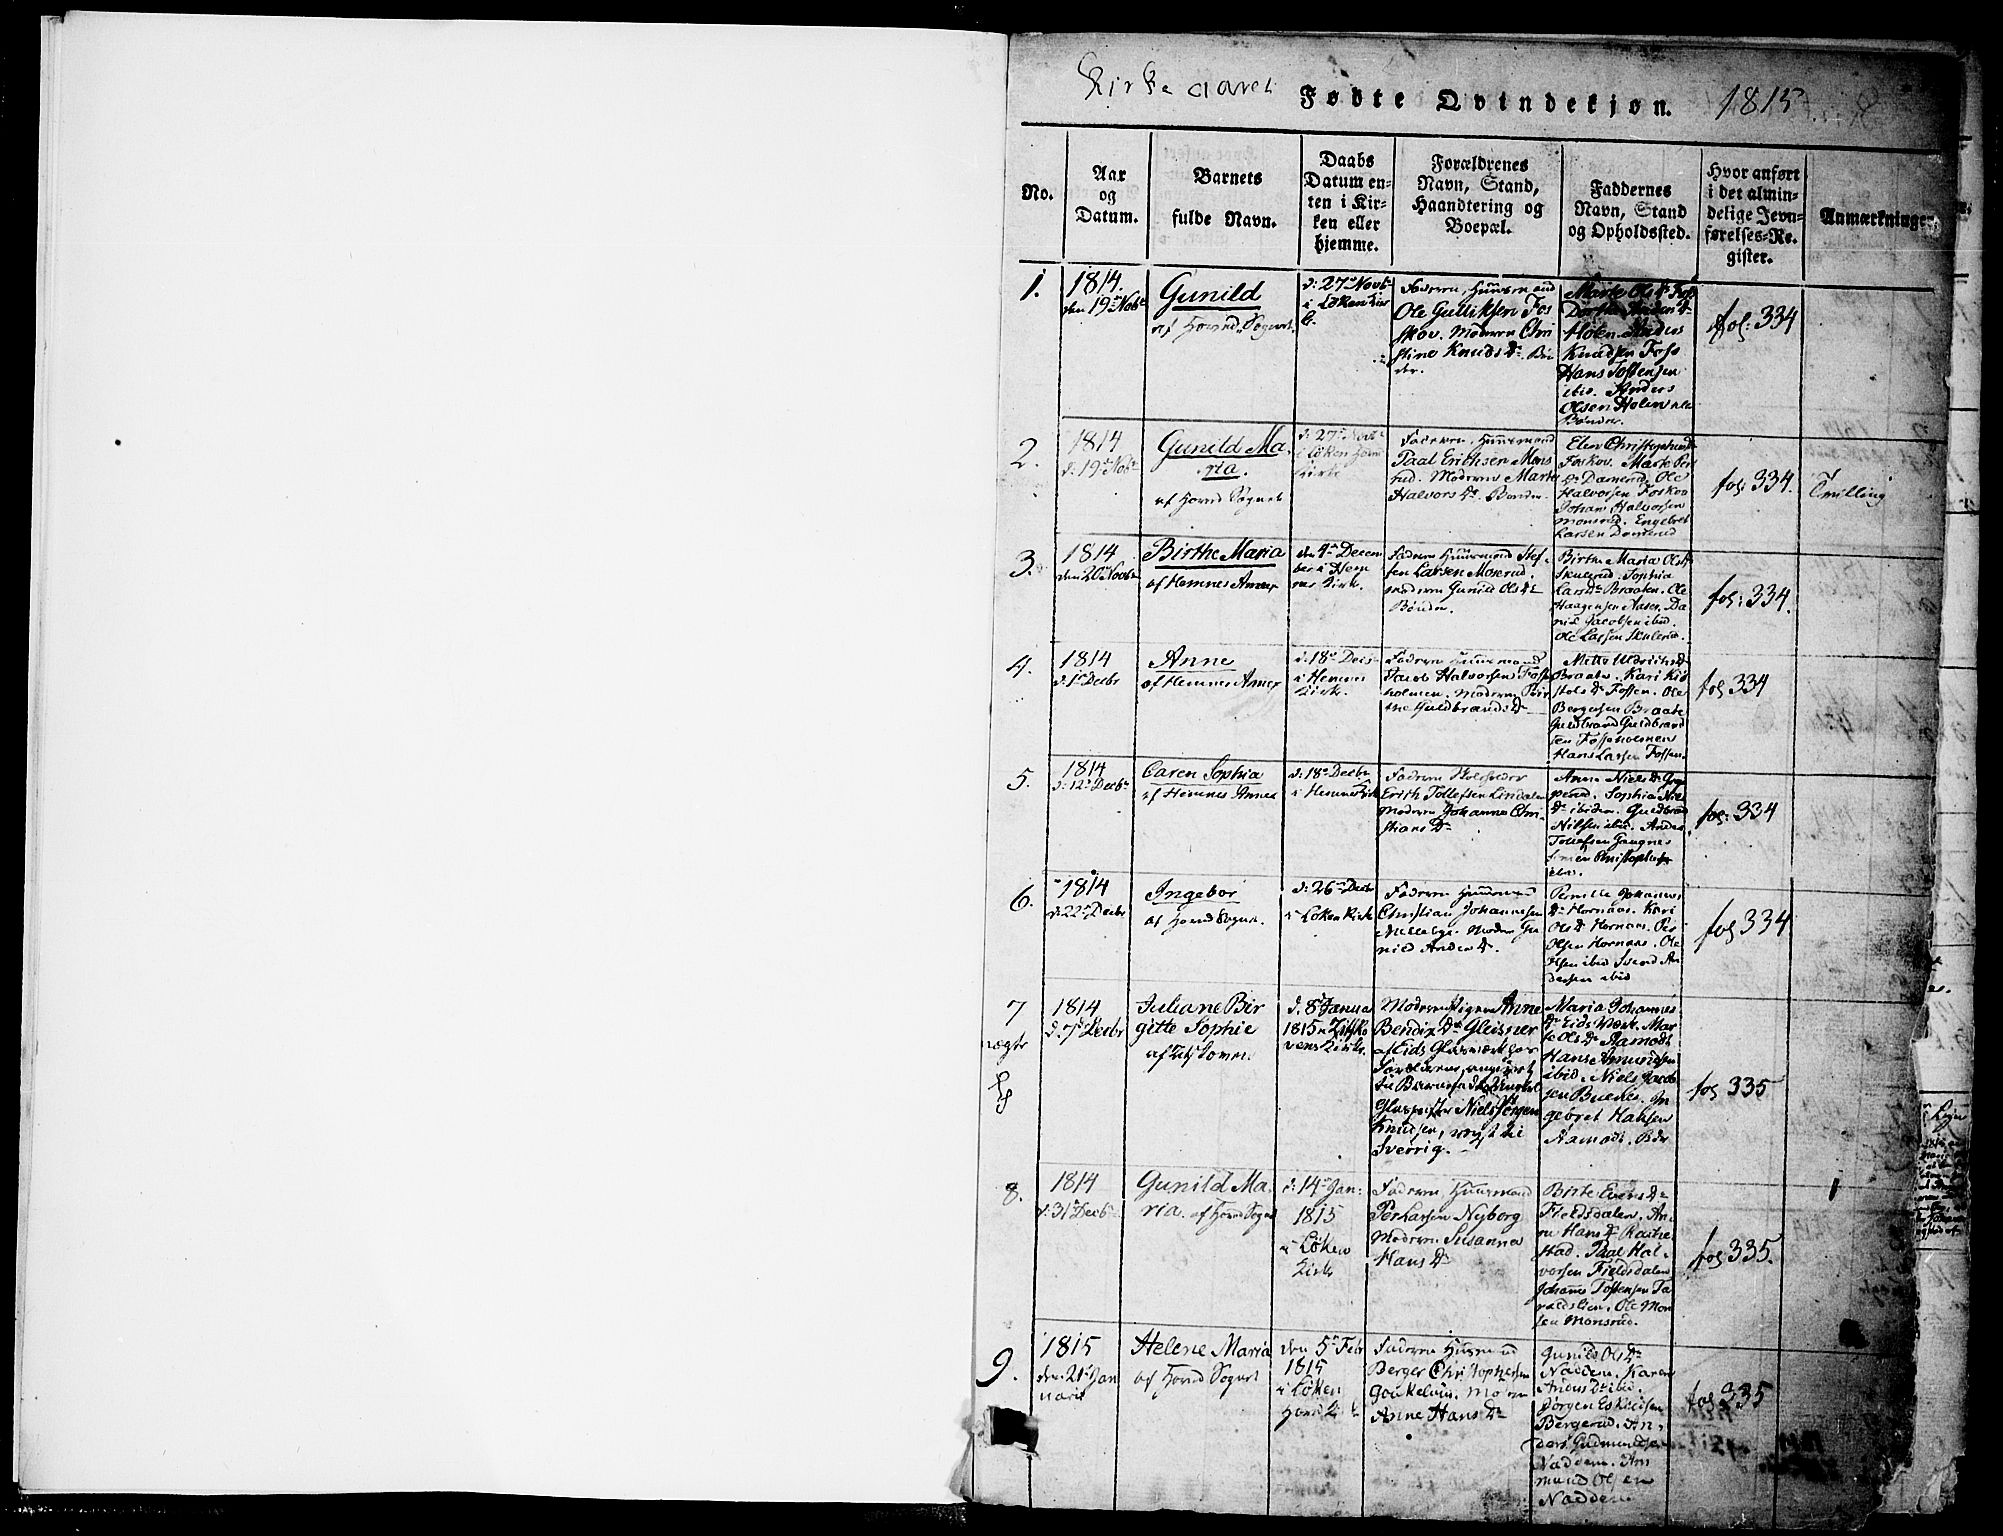 Kirkeaaret Fødte Qvindekjøn. 1815
No.
Aar
og
Datum.
Barnets
fulde Navn.
Daabs
Datum en-
ten i Kir-
ken eller
hjemme.
Forældrenes
Navn, Stand,
Haandtering og
Boepæl.
Faddernes
Navn, Stand
og Opholdssted.
Hvor anført
i det almin-
delige Jevn-
førelses-Re-
gister.
Anmærkninger
1.
1814.
den 19de Novbr
Gunild
af Hovd Sognet
d: 27de Novbr
i Løken Kir
Faderen, Huusmand
Ole Gulliksen Fos
skov. Moderen Chri
stine Knuds Dr. Bøn
der.
Marte Ols Dr
Dorthe Anders Dr
Holen. Anders
Knudsen Foss
Hans Tostensen
ibid. Anders
Olsen Holen alle
Bønder
fol: 334
2.
1814
d: 19de Nobr
Gunild Ma
ria.
af Hovd Sognet
d: 27de Novbr
i Løken Hovd
Kirke
Faderen, Huusmand
Paal Erichsen Mons
rud. Moderen Marte
Halvors Dr. Bønder
Elen Christophersd
Foskov. Marte Per
Dr Damerud. Ole
Halvorsen Foskov
Johan Halvorsen
Monsrud. Engebret
Larsen Damrud
fol: 334.
Tvilling
3.
1814
den 20de Novbr
Birthe Maria
af Hemnes Annex
den 4de Decem
ber i Hem
nes Kirk.
Faderen Huusmand Stef
fen Larsen Moserud.
Moderen Gunild Ols Dr
Bønder.
Birthe Maria Olsd
Skulerud. Sophia
Lars Dr Braaten. Ole
Haagensen Aaser. Da
niel Jacobsen ibid.
Ole Larsen Skulerud.
fol: 334.
4.
1814
d: 1de Decbr
Anne
af Hemnes Annex
d: 18de Decbr
i Hemnes
Kirk.
Faderen Huusmand
Jacob Halvorsen Foss
holmen. Moderen Bir
the Guldbrands Dr
Mette Uldrichsd
Braate. Kari Kid
stols Dr Fossen. Ole
Bergersen Braate
Guldbrand Guldbrand
sen Fossholmen
Hans Larsen Fossen.
fol 334
5.
1814
d: 12de Decbr
Caren Sophia
af Hemnes Annex
d: 18de Decbr
i Hemnes Kirk
Faderen
Erich Tollefsen Lindalen
Moderen Johanne Chri
stians Dr
Anne Niels Dr
Sophia Niel
Dr ibidem. Guldbrand
Nilsen ibid. Anders
Tollefsen Gangnes
Simen Christophers
ibid.
fol: 334
6.
1814
d: 22de Decbr
Ingebor
af Hovd Sognet.
d: 26de Decbr
i Løken Kirke
Faderen Huusmand
Christian Johannesen
Mellebye. Moder Gu
nild Anders Dr.
Pernille Johannes
Dr Hornaas. Kari
Ols Dr Hornaas. Per
Olsen Hornaas. Ole
Olsen ibid Svend An
dersen ibid
fol 334
7
1814
d. 7de Decbr
Juliane Bir
gitte Sophie
d. 8de Janua
1815 i
vens Kirke.
Moderen Pigen Anne
Bendix Dr Gleisner
af Eids Glasværk
Forældrene, angivet
til Barnefader
Niels Jørgen
Knudsen, reyst til
Sverrig.
Maria Johannes
Dr Eids Værk. Mar
te Ols Dr Aamodt
Hans Amundsen
ibid. Niels Jacob
sen Buenes. In
gebret Hansen
Aamodt. Bdr
fol 335
8.
1814
d. 31de Decbr
Gunild Ma
ria. af Hovd Sognet
d: 14de Jan:
1815
i Løken
Kirke
Faderen, Huusmand
Per Larsen Nyborg
Moderen Susanna
Hans Dr
Birte Evens Dr
Fieldsdalen. An
ne Hans Dr Kache
stad. Paal Hal-
vorsen Fieldsdalen
Johannes Tostensen Ta
raldslien. Ole Mon
sen Monsrud.
fol 335.
9.
1815
den 21de Jan
uarii
Helene Maria
af Hovd Sognet
den 5de Febr
1815
i Løken
Hovd K
Faderen Huusmand
Berger Christophersen
Goukelrud. Moderen
Anne Hans Dr
Gunild Ols Dr
Nadden. Karen
Anders Dr ibid.
Jørgen Eskildsen
Bergerud. An-
ders Gudmundsen
Nadden. Am
mund Olsen
Nadden
fol 335